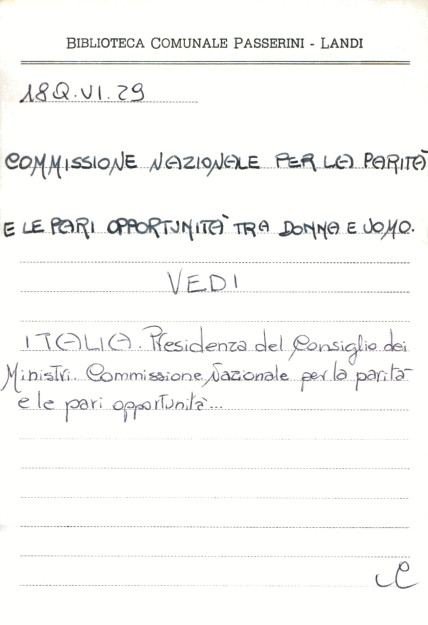 BIBLIOTECA COMUNALE PASSERINI - LANDI
18Q.VI.29
COMMISSIONE NAZIONALE PER LA PARITÀ
E LE PARI OPPORTUNITÀ TRA DONNA E UOMO.
VEDI
ITALIA. Presidenza del Consiglio dei
Ministri. Commissione Nazionale per la parità
e le pari opportunità...